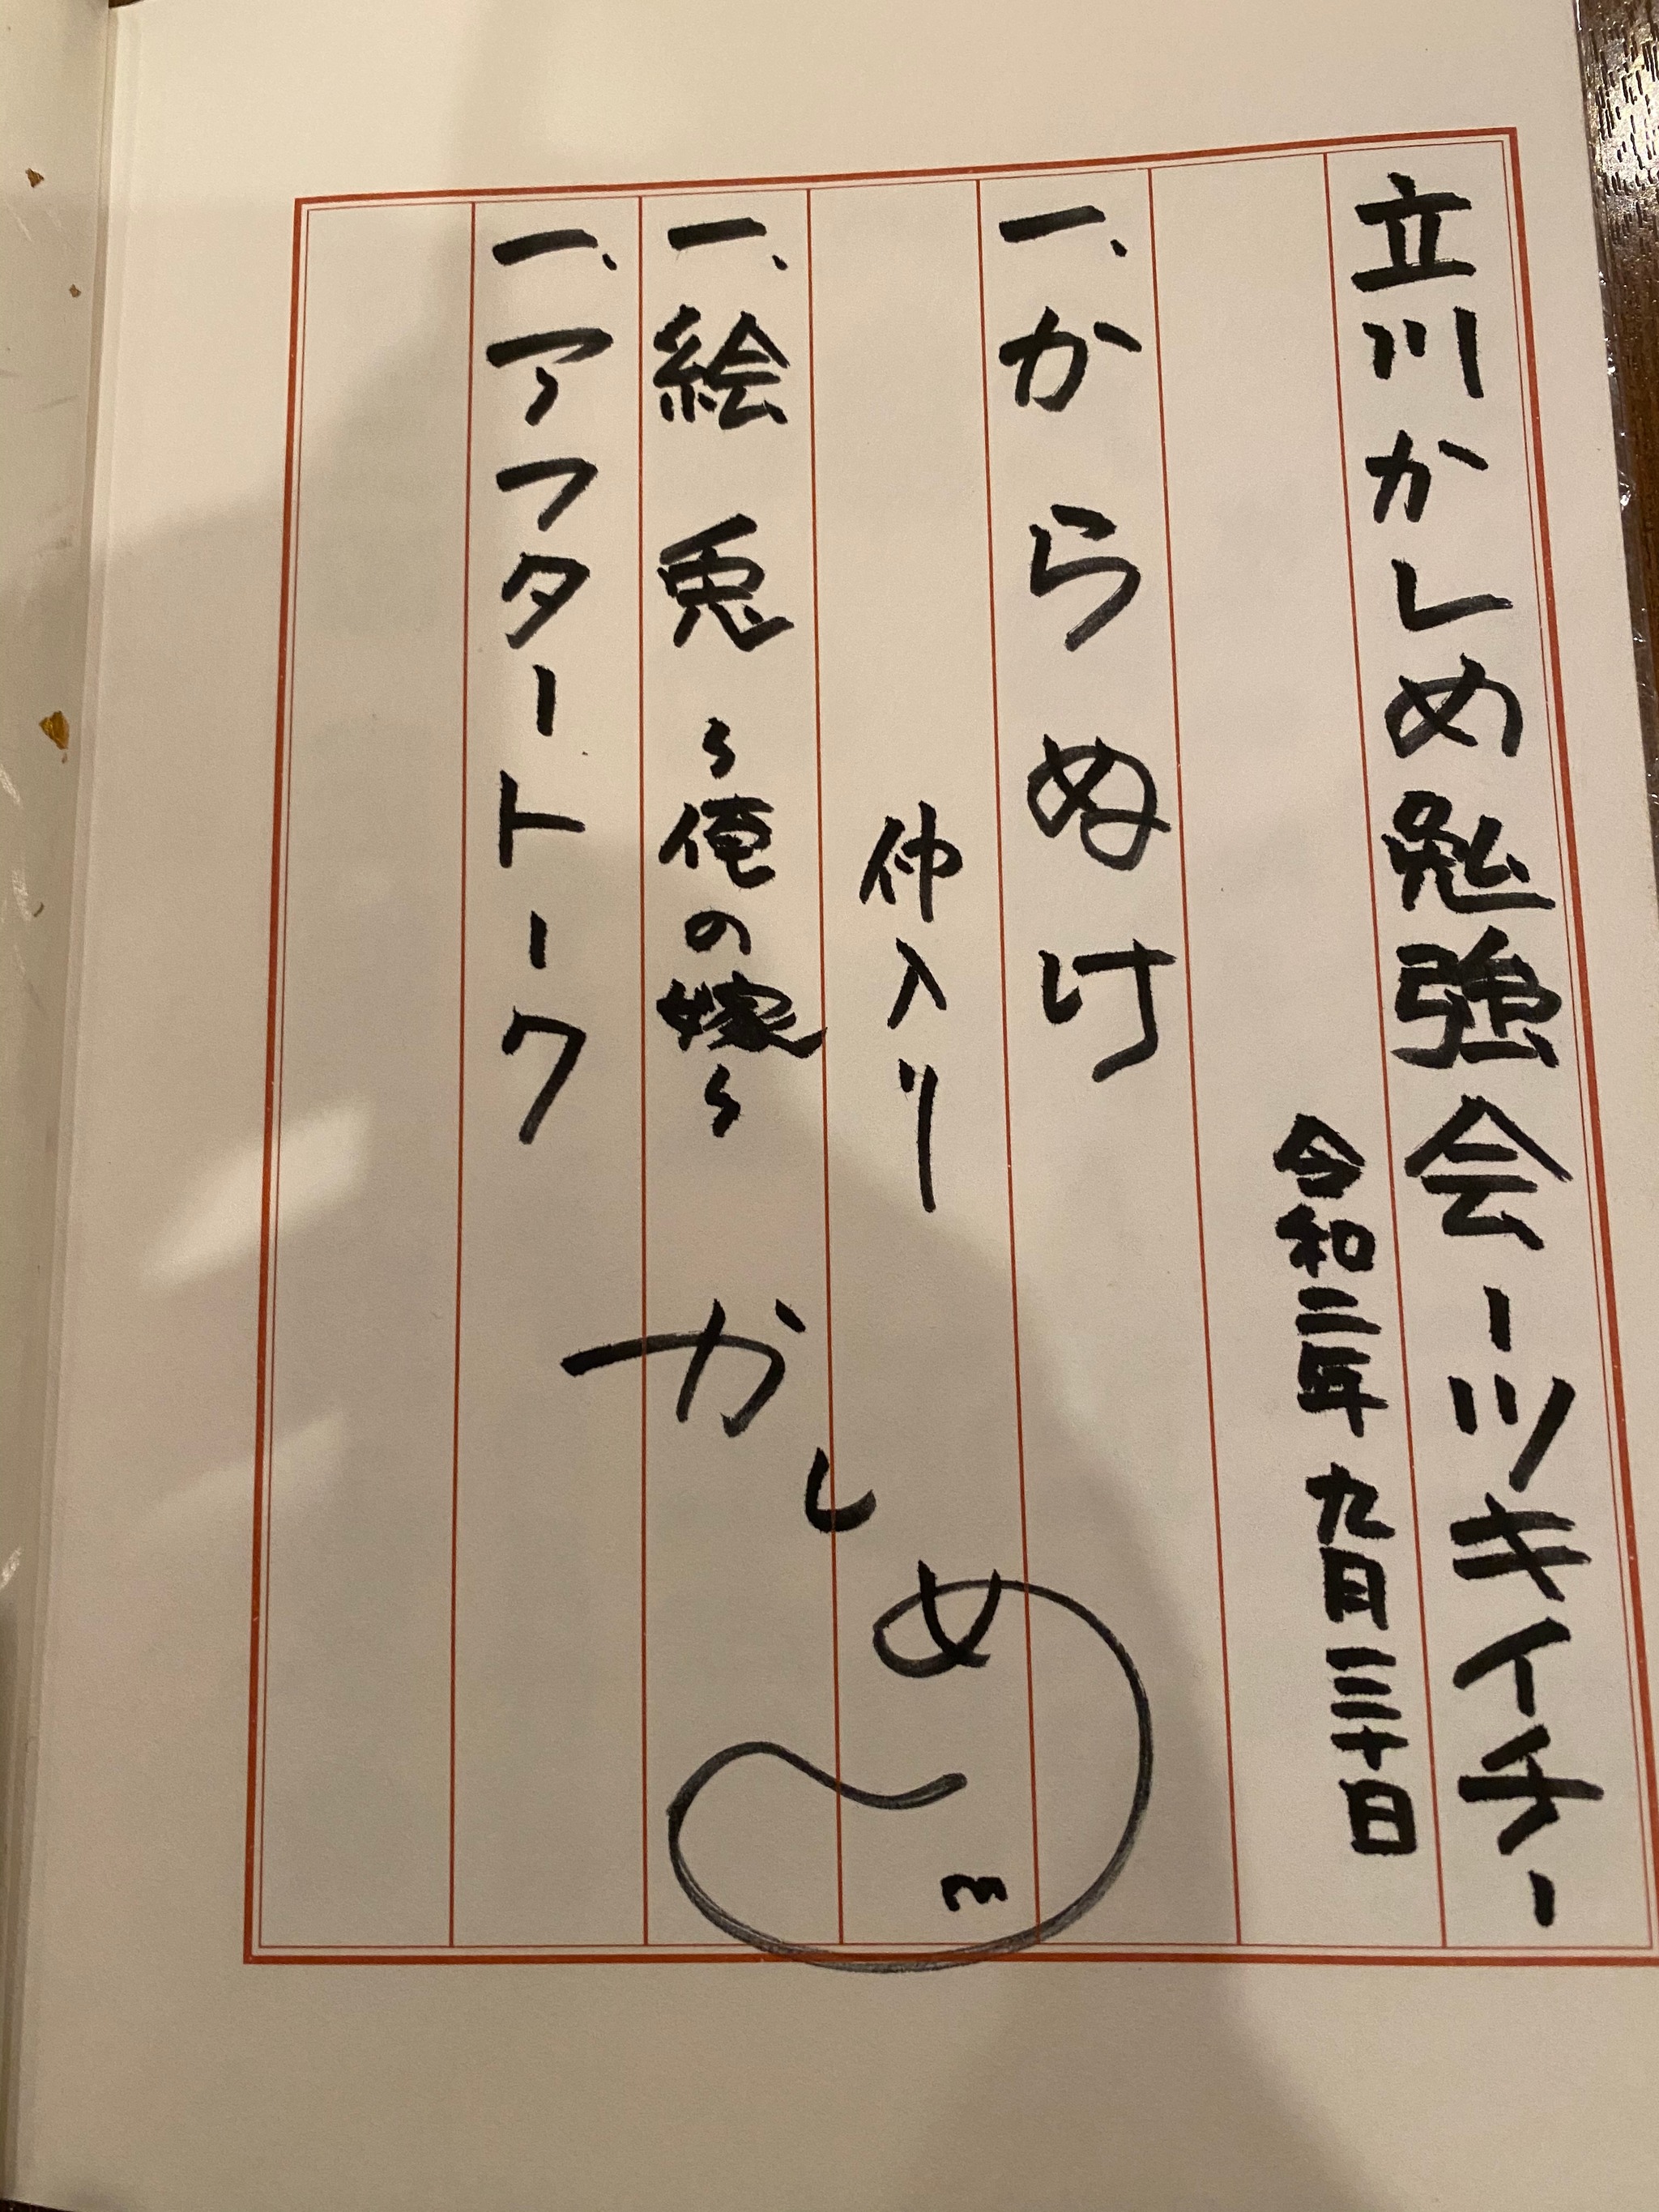 立川かしめ勉強会-ツキイチ-
令和二年九月三十日
一、からぬけ
仲入り
一、絵兎〜俺の嫁〜
一、アフタートーク
かしめ